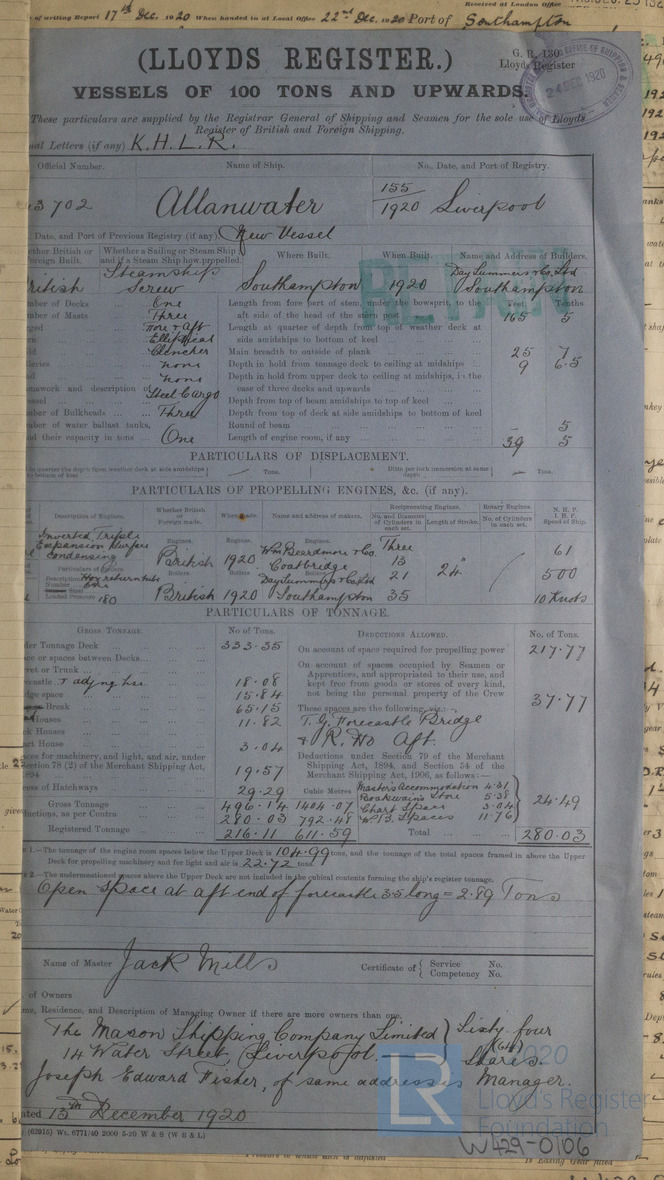 of writing Report 17th Dec. 1920 When handed in at Local Office 22nd Dec. 1920 Port of Southampton
Received at London Office
(LLOYDS REGISTER.)
G. R. 130
Lloyds Register
24 DEC 1920
VESSELS OF 100 TONS AND UPWARDS.
These particulars are supplied by the Registrar General of Shipping and Seamen for the sole use of Lloyds
Register of British and Foreign Shipping.
nal Letters (if any) K.H.L.R.
Official Number. Name of Ship. No., Date, and Port of Registry.
3702 Allanwater 155/1920 Liverpool
, Date, and Port of Previous Registry (if any) New Vessel
ether British or Foreign Built. Whether a Sailing or Steam Ship and if a Steam Ship how propelled. Where Built. When Built. Name and Address of Builders.
British Steamship Screw Southampton 1920 Day Summers & Co. Ltd Southampton
RETAIN
mber of Decks ... One Length from fore part of stem, under the bowsprit, to the Feet Tenths
mber of Masts ... Three aft side of the head of the stern post 165 5
ged ... Fore & Aft Length at quarter of depth from top of weather deck at
rn ... Elliptical side amidships to bottom of keel
ld ... Clencher Main breadth to outside of plank 25 7
leries ... none Depth in hold from tonnage deck to ceiling at midships 9 6.5
d ... none Depth in hold from upper deck to ceiling at midships, in the
mework and description of case of three decks and upwards
essel ... Steel Cargo Depth from top of beam amidships to top of keel
mber of Bulkheads ... Three Depth from top of deck at side amidships to bottom of keel
ber of water ballast tanks, Round of beam - 5
nd their capacity in tons ... One Length of engine room, if any 39 5
PARTICULARS OF DISPLACEMENT.
to quarter the depth from weather deck at side amidships to bottom of keel Tons. Ditto per inch immersion at same depth Tons.
PARTICULARS OF PROPELLING ENGINES, &c. (if any).
Description of Engines. Whether British or Foreign made. When made. Name and address of makers. Reciprocating Engines. Rotary Engines. N. H. P.
No. and Diameter of Cylinders in each set. Length of Stroke. No. of Cylinders in each set. I. H. P. Speed of Ship.
Inverted, Triple Expansion Surface Condensing Engines. British Engines. 1920 Engines. Wm Beardmore & Co. Coatbridge Three 13 21 35 24" 61 500 10 Knots
Particulars of Boilers
Description Hor return tube
Number One
Loaded Pressure 180
Boilers British Boilers 1920 Boilers Day Summers & Co Ltd Southampton
PARTICULARS OF TONNAGE.
GROSS TONNAGE. No of Tons. DEDUCTIONS ALLOWED. No. of Tons.
der Tonnage Deck 333.35 On account of space required for propelling power 217.77
ace or spaces between Decks...
ret or Trunk ...
On account of spaces occupied by Seamen or
Apprentices, and appropriated to their use, and
ecastle 18.08 kept free from goods or stores of every kind,
dge space 15.84 not being the personal property of the Crew 37.77
Break 65.15 These spaces are the following, viz :—
Houses 11.82 T. G. Forecastle Bridge
k Houses & R. Ho Aft.
art House 3.04 Deductions under Section 79 of the Merchant
ces for machinery, and light, and air, under Shipping Act, 1894, and Section 54 of the
ection 78 (2) of the Merchant Shipping Act, 19.57 Merchant Shipping Act, 1906, as follows:—
894
ess of Hatchways 29.29 Cubic Metres Master's Accommodation 4.31
Gross Tonnage 496.14 1404.07 Boatswain's Store 5.38
uctions, as per Contra 280.03 792.48 Chart Space 3.04 24.49
W.B. Spaces 11.76
Registered Tonnage 216.11 611.59 Total 280.03
1.—The tonnage of the engine room spaces below the Upper Deck is 104.99 tons, and the tonnage of the total spaces framed in above the Upper
Deck for propelling machinery and for light and air is 22.72 tons.
2.—The undermentioned spaces above the Upper Deck are not included in the cubical contents forming the ship's register tonnage.
Open space at aft end of forecastle 3.5 long = 2.89 Tons
Name of Master Jack Mills Certificate of { Service No. Competency No.
of Owners
me, Residence, and Description of Managing Owner if there are more owners than one.
The Mason Shipping Company Limited } Sixty four
14 Water Street, Liverpool. — (64) Shares.
Joseph Edward Fisher, of same address is Manager.
ated 13th December 1920
(62915) Wt. 6771/40 2000 5-20 W & S (W B & L)
LR
2020
Lloyd's Register
Foundation
W429-0106